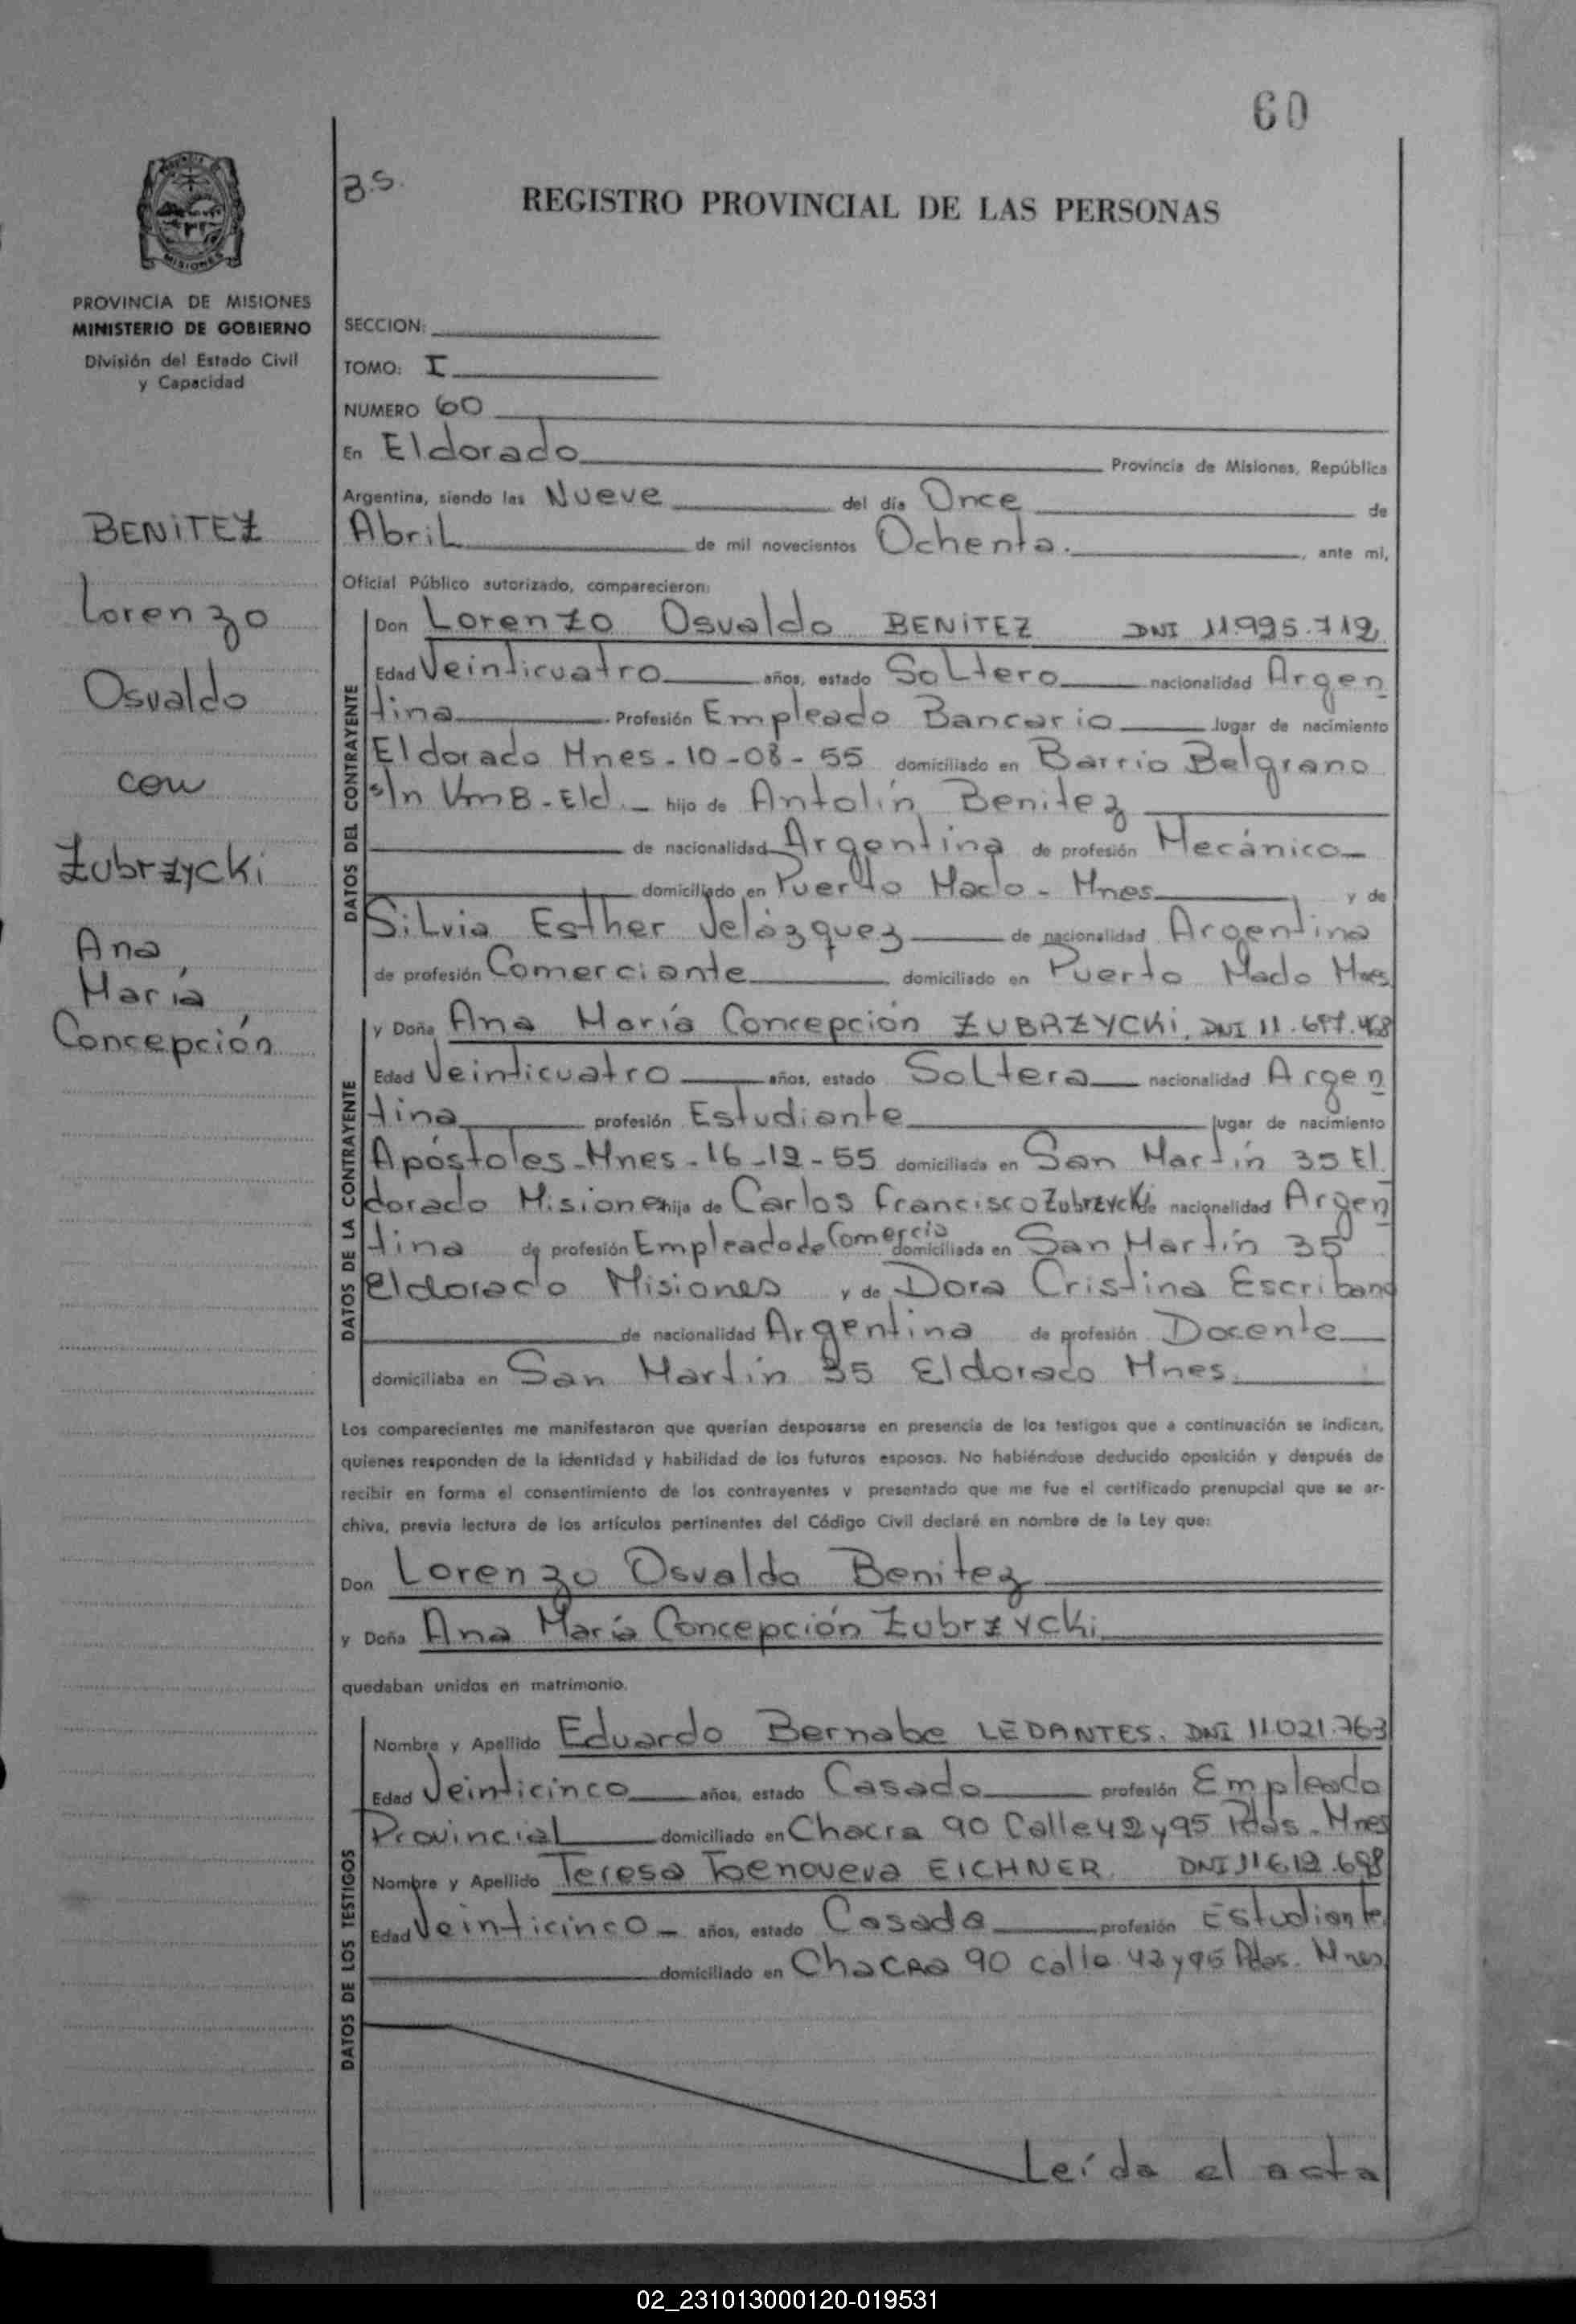 60
B.S.
REGISTRO PROVINCIAL DE LAS PERSONAS
MISIONES
PROVINCIA DE MISIONES
MINISTERIO DE GOBIERNO
División del Estado Civil
y Capacidad
SECCION:
TOMO: I
NUMERO 60
En Eldorado Provincia de Misiones, República
Argentina, siendo las Nueve del día Once de
Abril de mil novecientos Ochenta. , ante mi,
Oficial Público autorizado, comparecieron:
BENITEZ
Lorenzo
Osvaldo
con
Zubrzycki
Ana
María
Concepción
DATOS DEL CONTRAYENTE
Don Lorenzo Osvaldo BENITEZ DNI 11.995.712
Edad Veinticuatro años, estado Soltero nacionalidad Argen
tina Profesión Empleado Bancario lugar de nacimiento
Eldorado Mnes - 10-08-55 domiciliado en Barrio Belgrano
s/n Km8-Eld. hijo de Antolín Benitez
de nacionalidad Argentina de profesión Mecánico
domiciliado en Puerto Mado - Mnes y de
Silvia Esther Velázquez de nacionalidad Argentina
de profesión Comerciante domiciliado en Puerto Mado Mnes
DATOS DE LA CONTRAYENTE
y Doña Ana María Concepción ZUBRZYCKI, DNI 11.
Edad Veinticuatro años, estado Soltera nacionalidad Argen
tina profesión Estudiante lugar de nacimiento
Apóstoles-Mnes-16-12-55 domiciliada en San Martín 35 El
dorado Misiones hija de Carlos Francisco Zubrzycki de nacionalidad Argen
tina de profesión Empleado de Comercio domiciliada en San Martín 35
Eldorado Misiones y de Dora Cristina Escribano
de nacionalidad Argentina de profesión Docente
domiciliaba en San Martín 35 Eldorado Mnes
Los comparecientes me manifestaron que querían desposarse en presencia de los testigos que a continuación se indican,
quienes responden de la identidad y habilidad de los futuros esposos. No habiéndose deducido oposición y después de
recibir en forma el consentimiento de los contrayentes y presentado que me fue el certificado prenupcial que se ar-
chiva, previa lectura de los artículos pertinentes del Código Civil declaré en nombre de la Ley que:
Don Lorenzo Osvaldo Benitez
y Doña Ana María Concepción Zubrzycki
quedaban unidos en matrimonio.
DATOS DE LOS TESTIGOS
Nombre y Apellido Eduardo Bernabe LEDANTES. DNI 11.021.763
Edad Veinticinco años, estado Casado profesión Empleado
Provincial domiciliado en Chacra 90 Calle 42 y 95 Pdas. Mnes
Nombre y Apellido Teresa Genoveva EICHNER. DNI 11.612.698
Edad Veinticinco años, estado Casada profesión Estudiante
domiciliado en Chacra 90 calle 42 y 95 Pdas. Mnes
Leída el acta
02_231013000120-019531